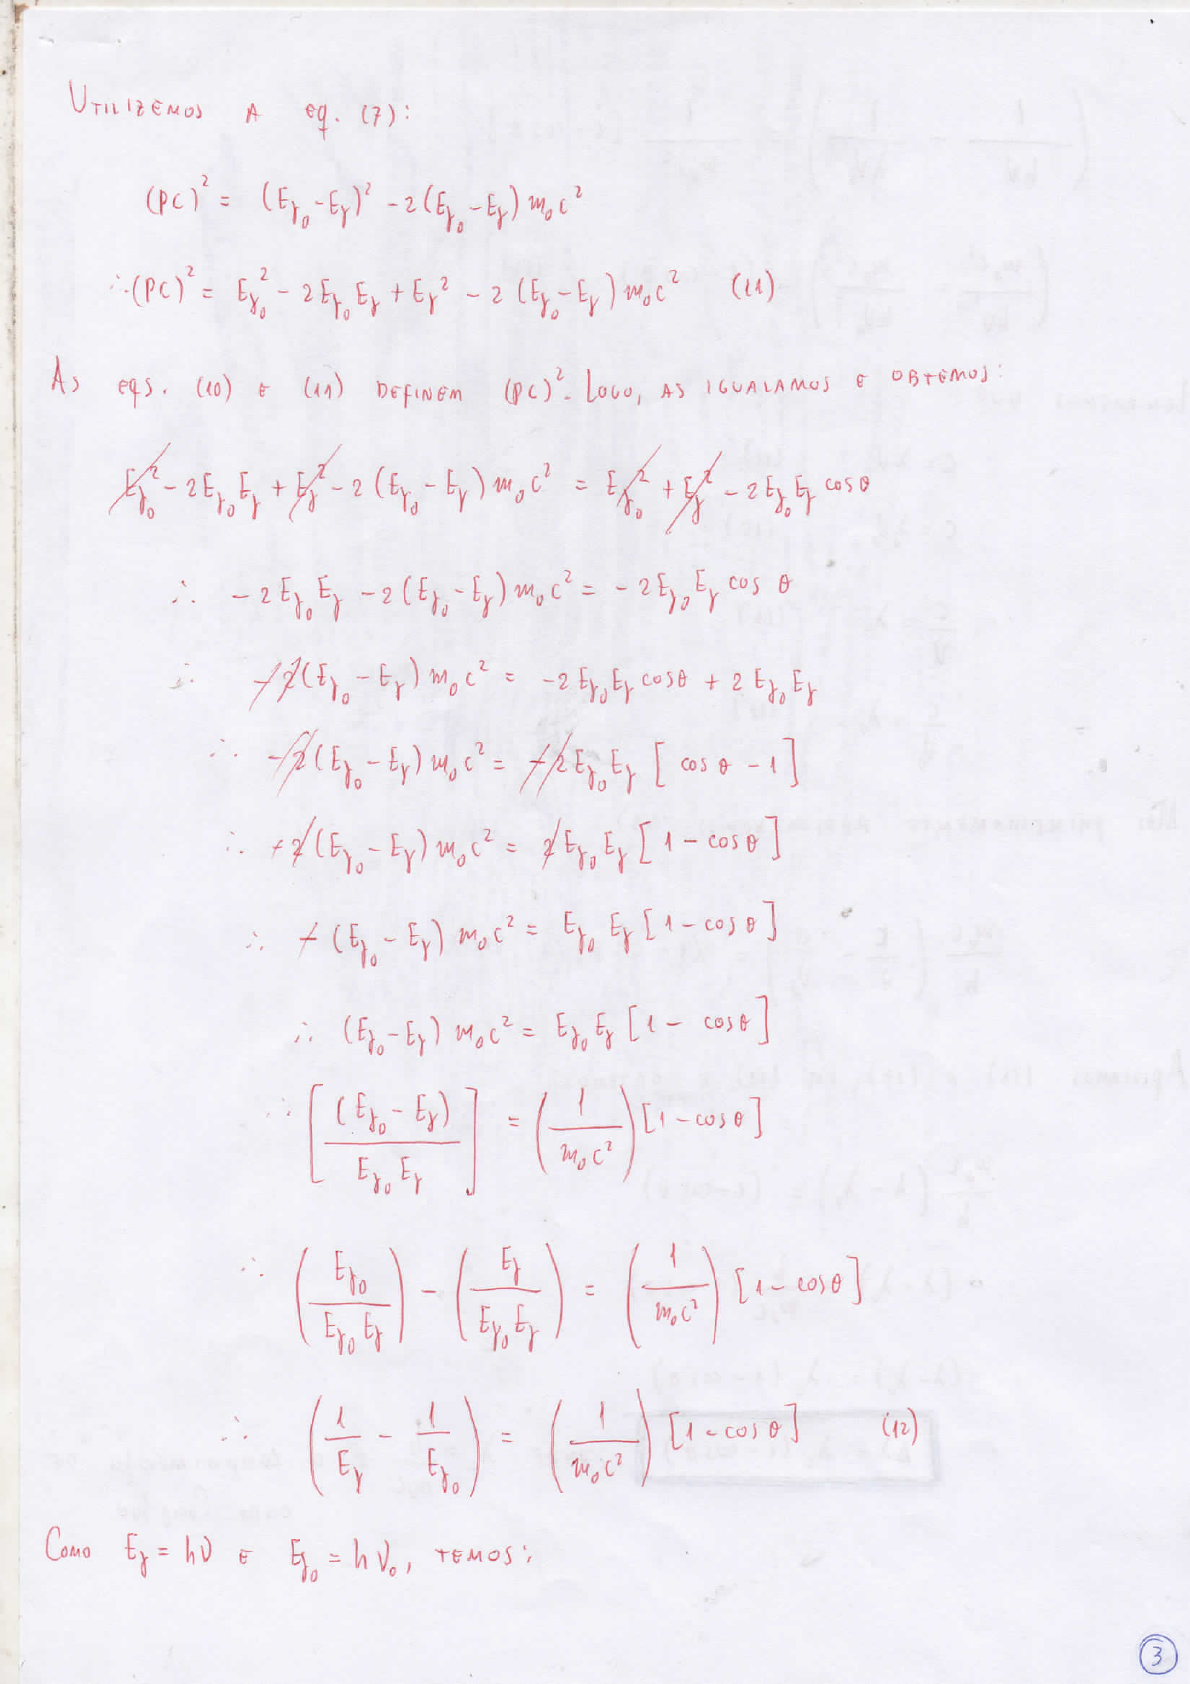 UTILIZEMOS A eq. (7):
(PC)² = (Eγ₀ - Eγ)² - 2(Eγ₀ - Eγ) m₀c²
∴ (PC)² = Eγ₀² - 2Eγ₀Eγ + Eγ² - 2(Eγ₀ - Eγ) m₀c² (11)
As eqs. (10) e (11) DEFINEM (PC)². LOGO, AS IGUALAMOS E OBTEMOS:
Eγ₀² - 2Eγ₀Eγ + Eγ² - 2(Eγ₀ - Eγ) m₀c² = Eγ₀² + Eγ² - 2Eγ₀Eγ cosθ
∴ -2Eγ₀Eγ - 2(Eγ₀ - Eγ) m₀c² = -2Eγ₀Eγ cos θ
∴ -2(Eγ₀ - Eγ) m₀c² = -2Eγ₀Eγ cosθ + 2Eγ₀Eγ
∴ -2(Eγ₀ - Eγ) m₀c² = -2Eγ₀Eγ [cos θ - 1]
∴ +2(Eγ₀ - Eγ) m₀c² = 2Eγ₀Eγ [1 - cosθ]
∴ (Eγ₀ - Eγ) m₀c² = Eγ₀Eγ [1 - cosθ]
∴ (Eγ₀ - Eγ) m₀c² = Eγ₀Eγ [1 - cosθ]
∴ [(Eγ₀ - Eγ) / Eγ₀Eγ] = (1 / m₀c²) [1 - cosθ]
∴ (Eγ₀ / Eγ₀Eγ) - (Eγ / Eγ₀Eγ) = (1 / m₀c²) [1 - cosθ]
∴ (1/Eγ - 1/Eγ₀) = (1 / m₀c²) [1 - cosθ] (12)
Como Eγ = hν e Eγ₀ = hν₀, TEMOS:
3